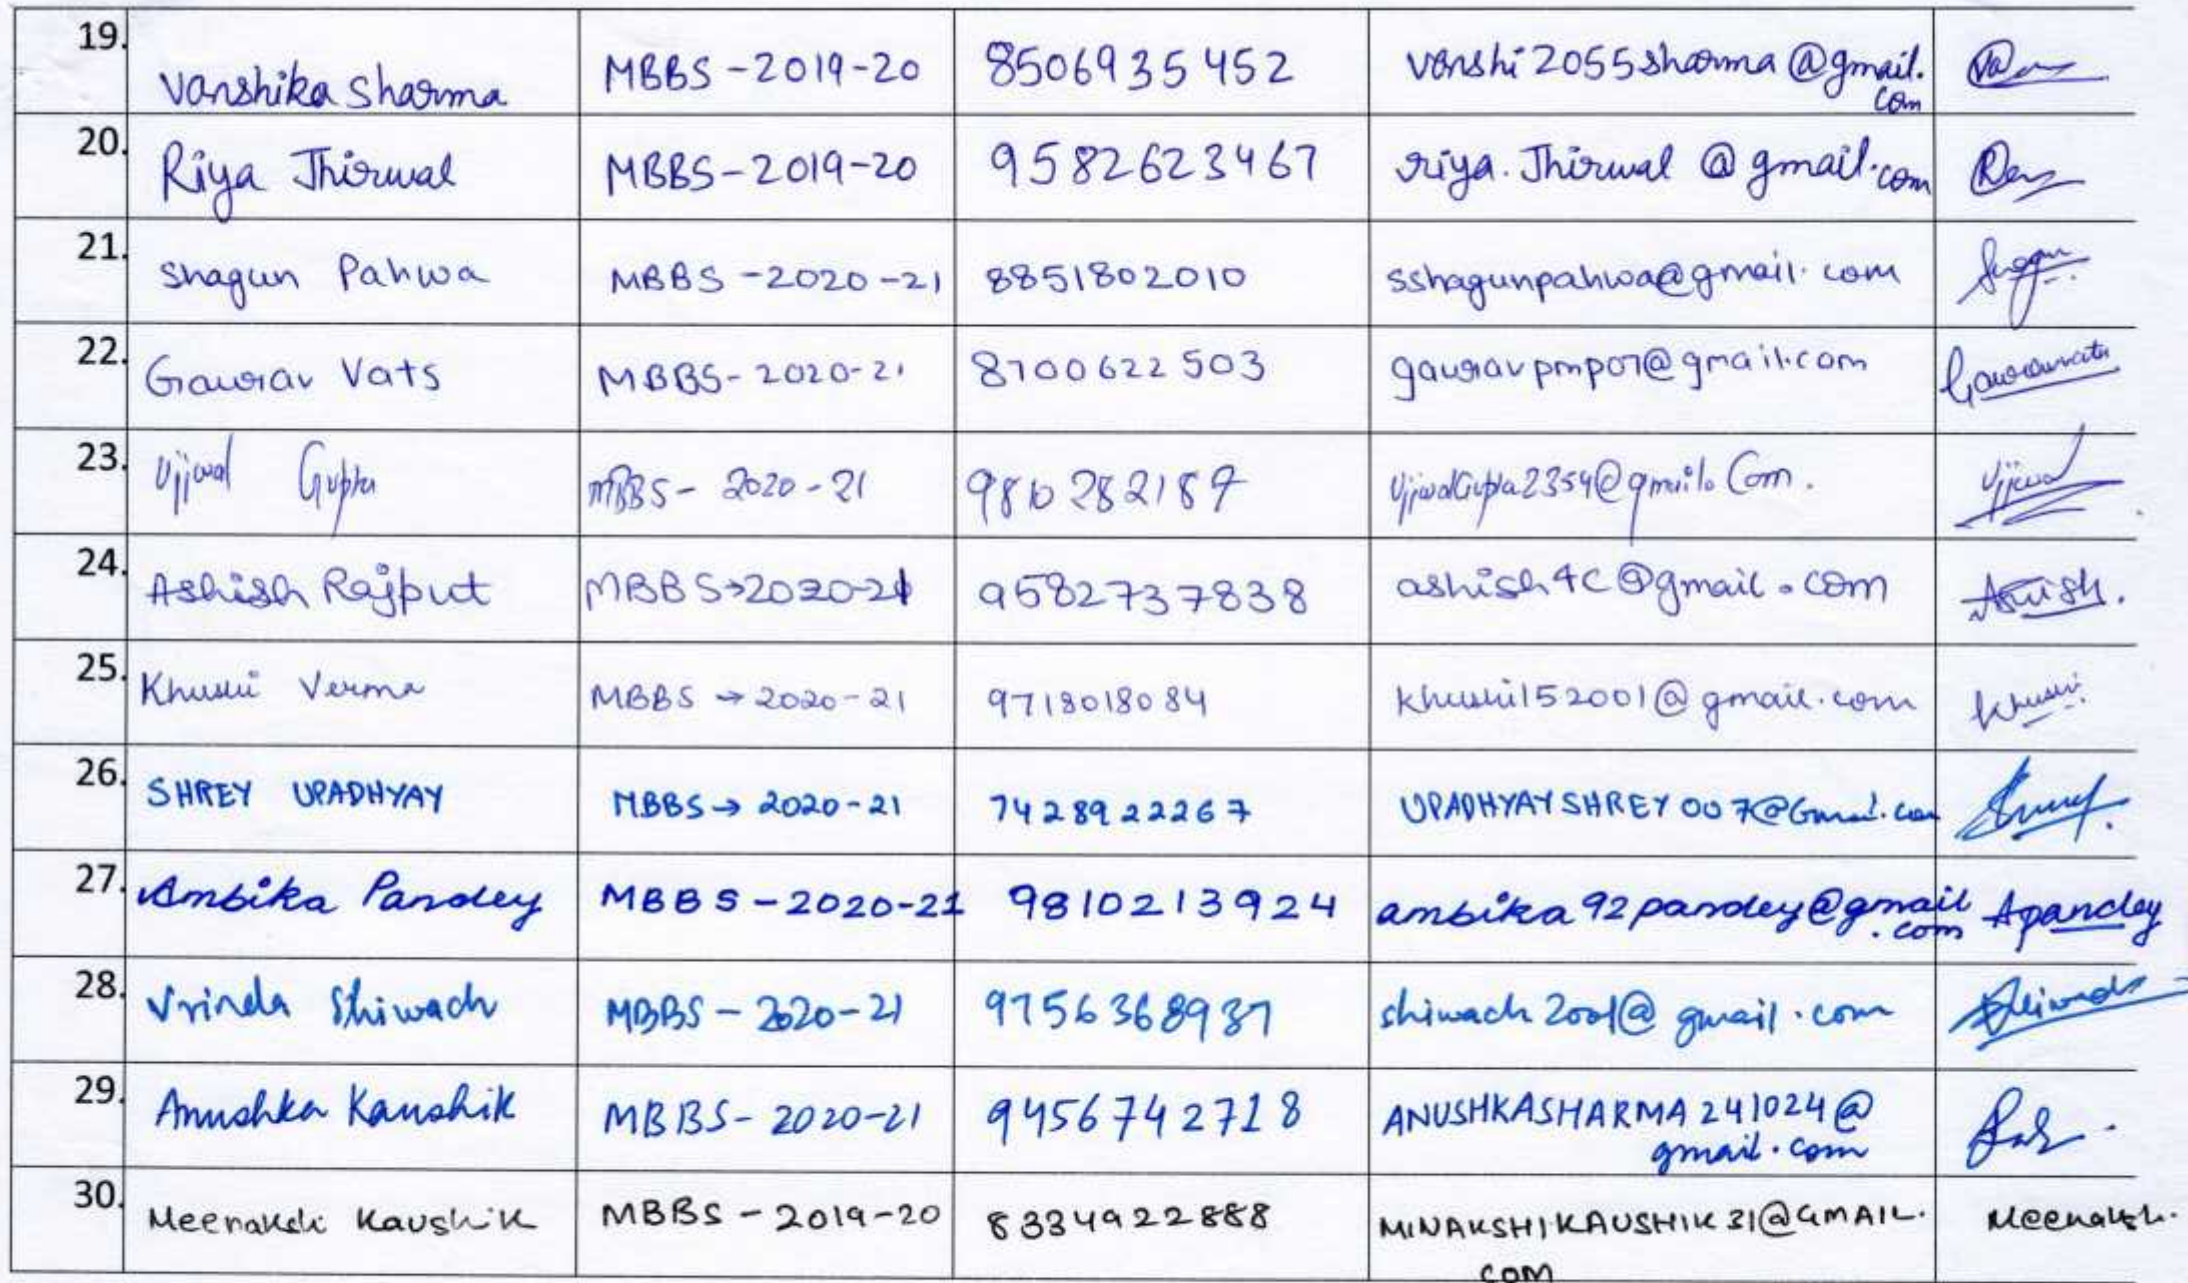 19. Vanshika Sharma MBBS - 2019-20 8506935452 vanshi2055sharma@gmail.
com
20. Riya Thirwal MBBS - 2019-20 9582623467 riya.Thirwal@gmail.com
21. Shagun Pahwa MBBS - 2020-21 8851802010 sshagunpahwa@gmail.com
22. Gaurav Vats MBBS - 2020-21 8700622503 gauravpmp07@gmail.com Gauravvats
23. Ujjwal Gupta MBBS - 2020-21 9810282187 UjjwalGupta2354@gmail.Com. Ujjwal
24. Ashish Rajput MBBS→2020-21 9582737838 ashish4c@gmail.com Ashish.
25. Khushi Verma MBBS → 2020-21 9718018084 khushi152001@gmail.com Khushi
26. SHREY UPADHYAY MBBS → 2020-21 7428922267 UPADHYAYSHREY007@Gmail.com
27. Ambika Pandey MBBS - 2020-21 9810213924 ambika92pandey@gmail Apandey
.com
28. Vrinda Shiwach MBBS - 2020-21 9756368937 shiwach2001@gmail.com Shiwach
29. Anushka Kaushik MBBS - 2020-21 9456742718 ANUSHKASHARMA241024@
gmail.com
30. Meenakshi Kaushik MBBS - 2019-20 8334922888 MINAKSHIKAUSHIK31@GMAIL. Meenakshi.
COM